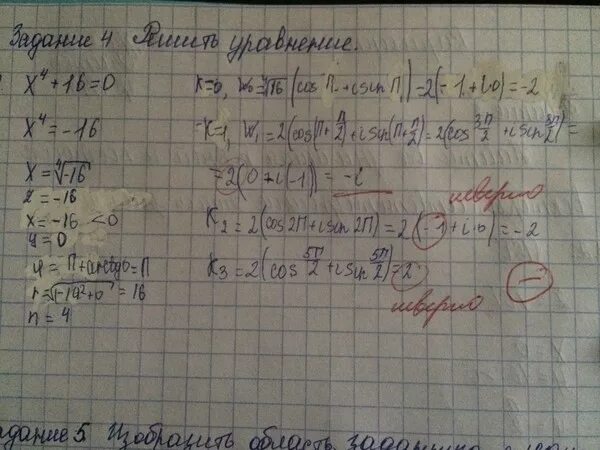 Задание 4 Решить уравнение.
x⁴+16=0
x⁴=-16
x=⁴√-16
z=-16
x=-16 <0
y=0
φ= π+arctg0=π
r=√-16²+0² =16
n=4
k=0, W₀=⁴√16 (cos π + i sin π)=2(-1+i0)=-2
k=1, W₁=2(cos(π+π/2)+i sin(π+π/2)=2(cos 3π/2 + i sin 3π/2)=
=2(0+i(-1))= -i
неверно
K₂=2(cos2π+i sin 2π)=2(-1+i·0)=-2
K₃=2(cos 5π/2 + i sin 5π/2)=2
неверно
адание 5 Изобразить область